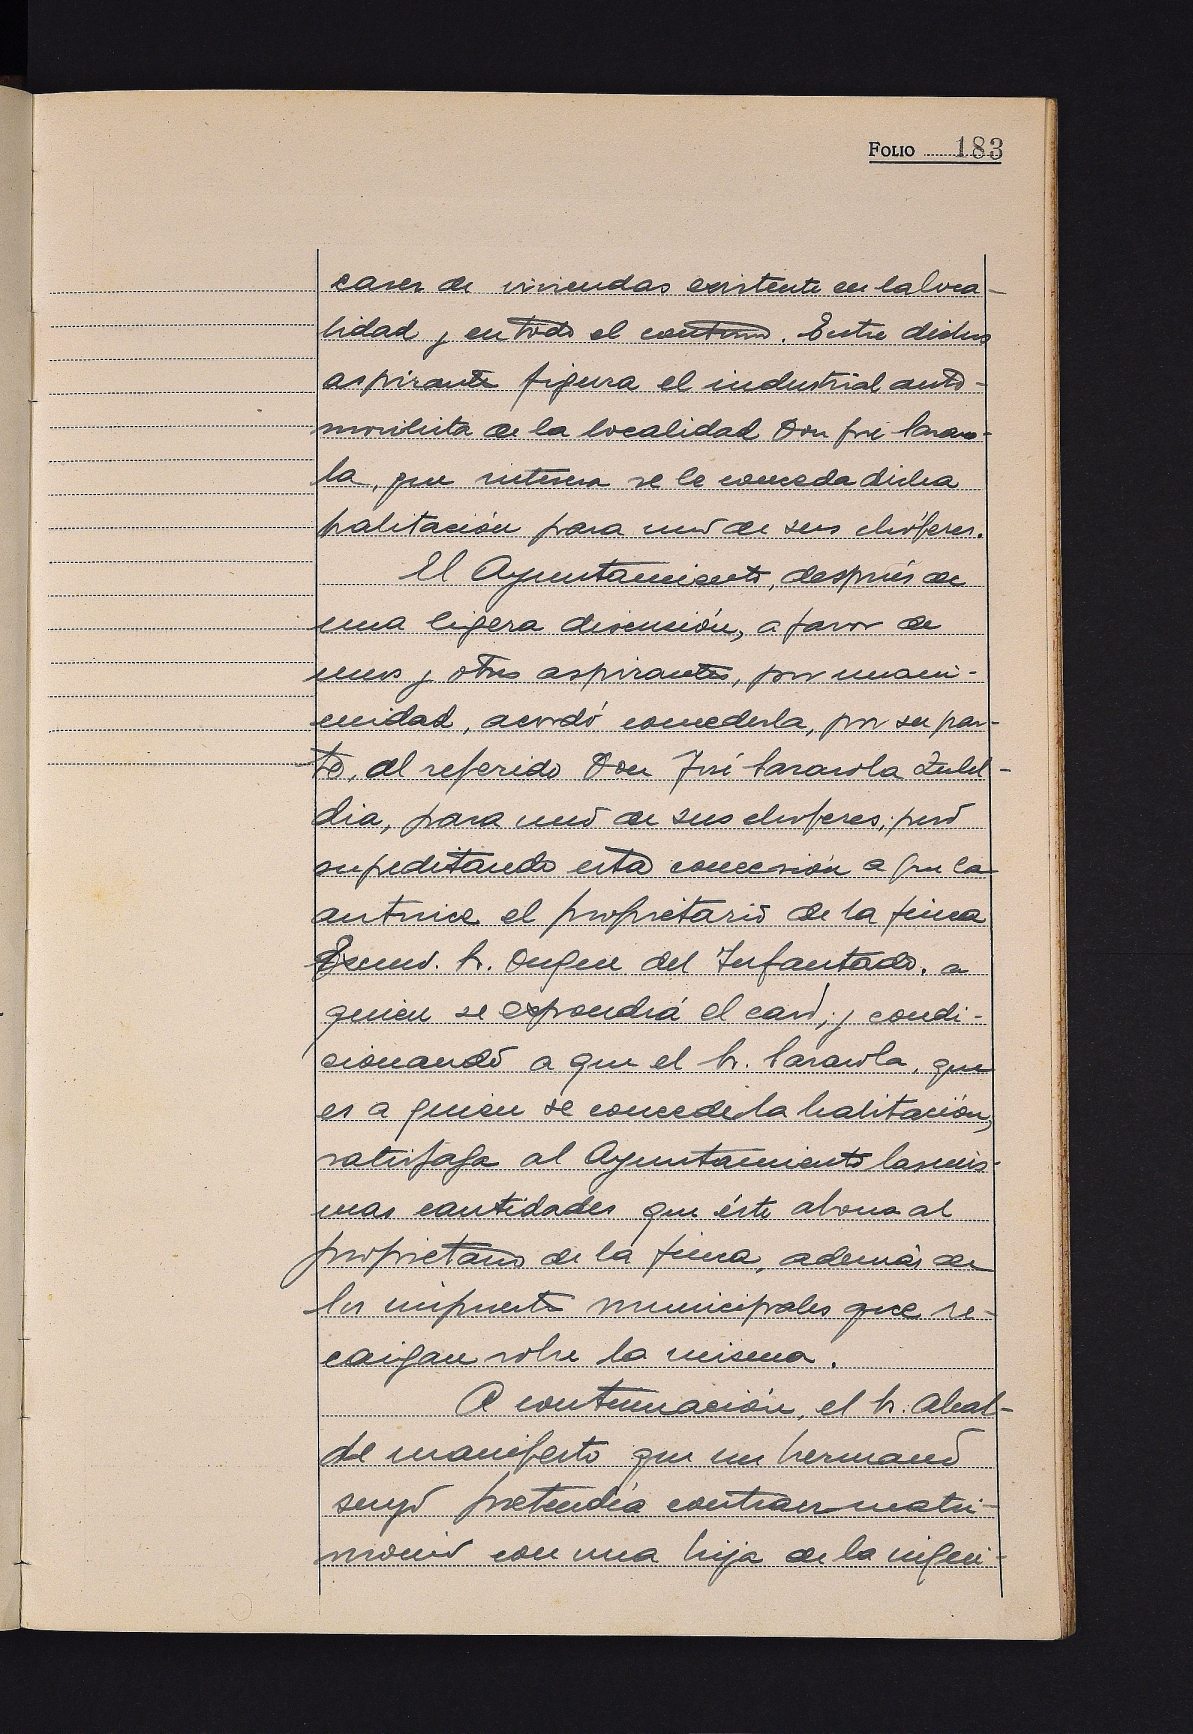 FOLIO 183
casez de viviendas existente en la loca-
lidad y en todo el contorno. Entre dichos
aspirantes figura el industrial auto-
movilista de la localidad Don José Larao-
la, que interesa se le conceda dicha
habitación para uno de sus chóferes.
El Ayuntamiento, después de
una ligera discusión, a favor de
unos y otros aspirantes, por unani-
midad, acordó concederla, por su par-
te, al referido Don José Lasaola Zulel-
dia, para uno de sus choferes; pero
supeditando esta concesión a que la
autorice el propietario de la finca
Excmo. Sr. Duque del Infantado, a
quien se expondrá el caso; y condi-
cionando a que el Sr. Lasaola, que
es a quien se concede la habitación,
satisfaga al Ayuntamiento las mis-
mas cantidades que éste abona al
propietario de la finca, además de
los impuestos municipales que re-
caigan sobre la misma.
A continuación, el Sr. Alcal-
de manifestó que un hermano
suyo pretendía contraer matri-
monio con una hija de la inqui-